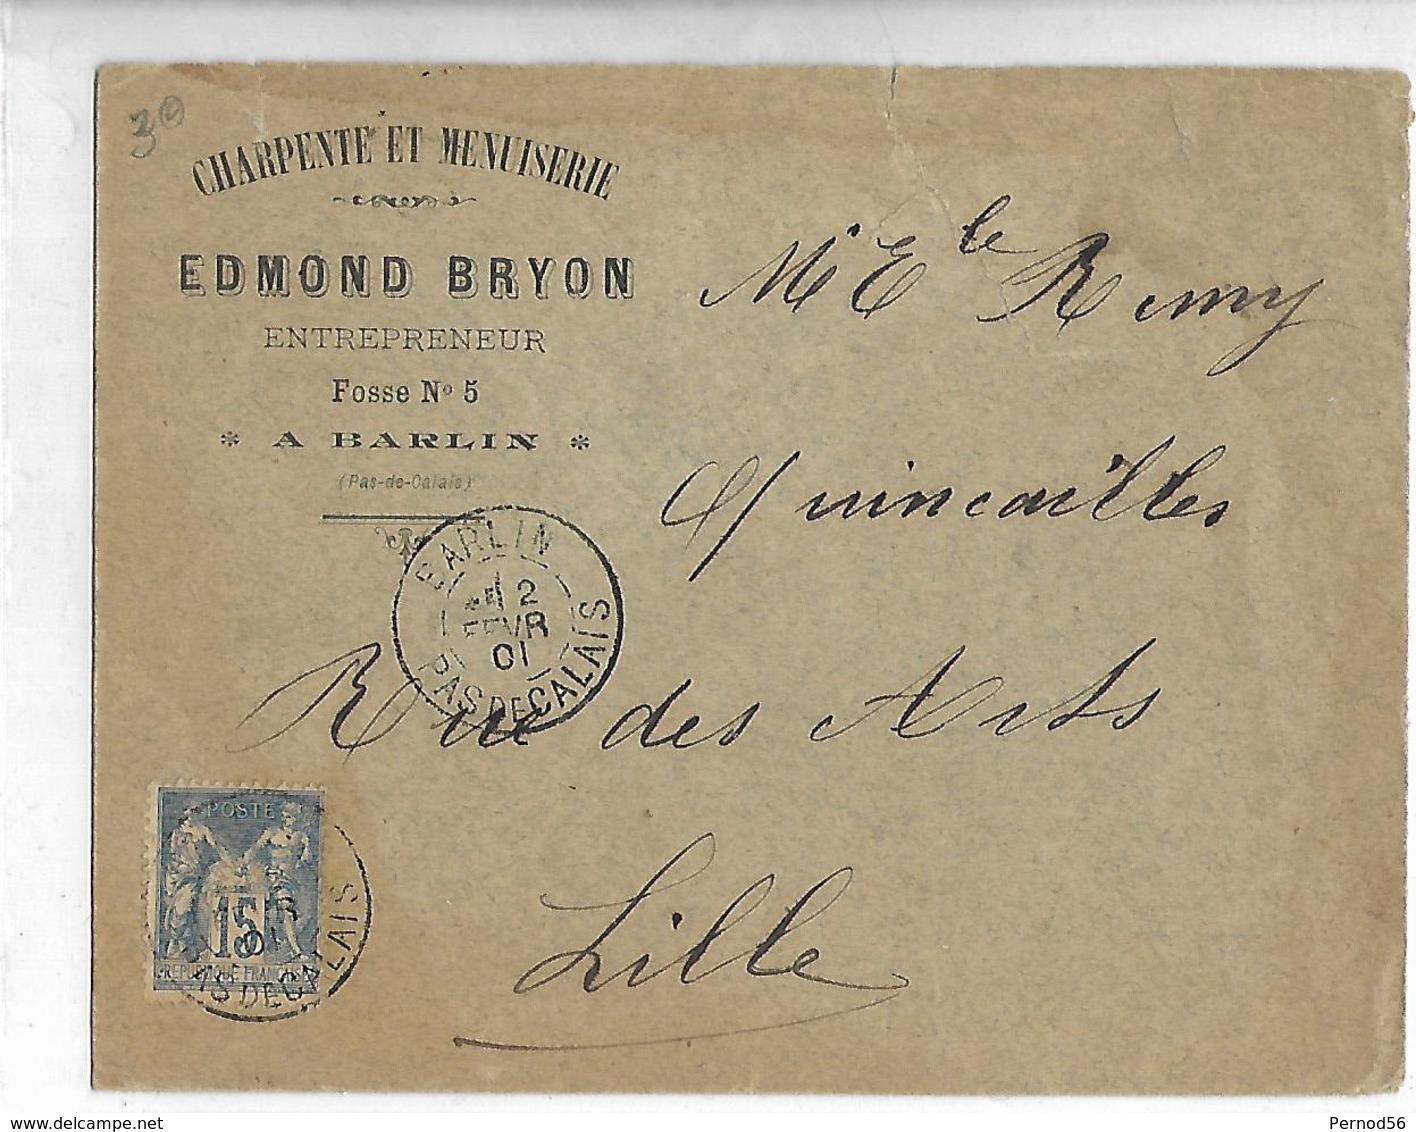 30
CHARPENTE ET MENUISERIE
EDMOND BRYON
ENTREPRENEUR
Fosse No 5
* A BARLIN *
(Pas-de-Calais)
Mr Ele Remy
Quincailles
Rue des Arts
Lille
BARLIN
2
FEVR
01
PAS DE CALAIS
POSTE
15
REPUBLIQUE FRANÇAISE
01
PAS DE CALAIS
www.delcampe.net
Pernod56